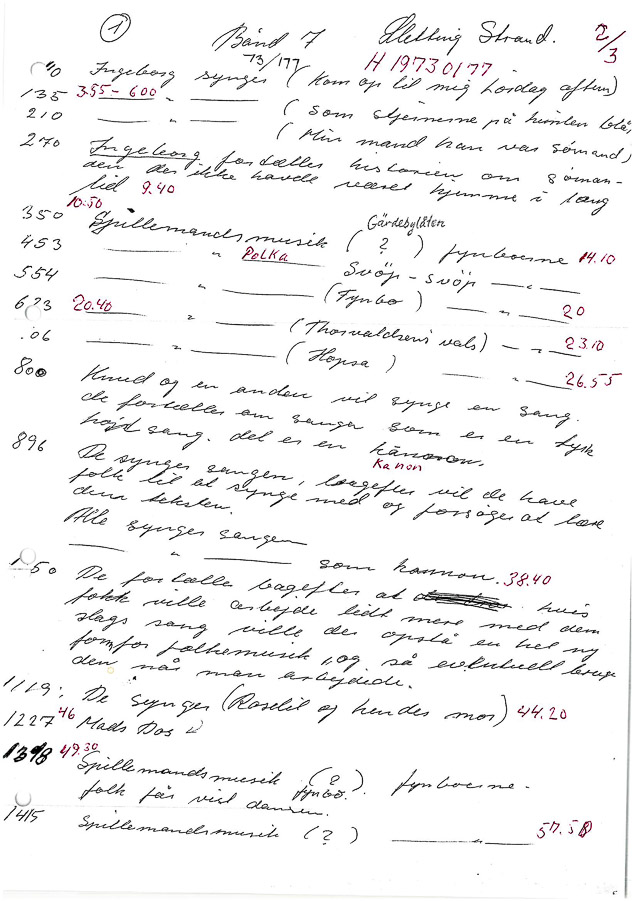 1
Bånd 7 Sletting Strand. 2/3
73/177 H 1973 0177
Ingeborg synger (Kom op til mig Lørdag aften)
135 3.55 - 6.00 " (Som stjernerne på himlen blå)
210 " (Min mand han var sømand)
270 Ingeborg fortæller historien om søman-
den der ikke havde været hjemme i lang
tid 9.40
10.50
350 Spillemandsmusik (?) Gärdebylåten fynboerne 14.10
453 " Polka Svöjp - svöjp "
554 " (Fynbo) " 20
673 20.40 " (Thorvaldsens vals) " 23.10
.06 " (Hopsa) " 26.55
800 Knud og en anden vil synge en sang.
de fortæller om sangen som er en tysk
højd sang. det er en kanon.
Kanon
896 De synger sangen, bagefter vil de have
folk til at synge med og forsøger at lære
dem teksten.
Alle synger sangen
" som kannon. 38.40
50 De fortælle bagefter at hvis
folk ville arbejde lidt mere med dem
slags sang ville der opstå en hel ny
form for folkemusik, og så eventuelt bruge
den når man arbejdede.
1119. De synger (Roselil og hendes mor) 44.20
1227 46 Mads Dos
1398 49.30 Spillemandsmusik (?) fynbo. fynboerne.
folk får vist dansen.
1415 Spillemandsmusik (?) " 57.50